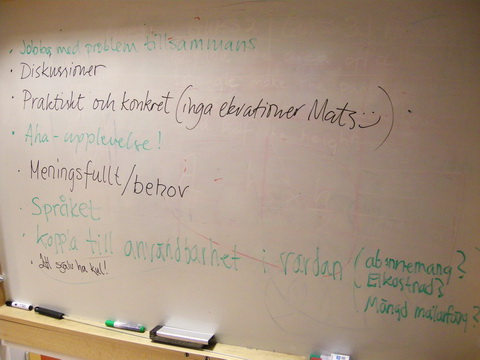 Jobba med problem tillsammans
Diskussioner
Praktiskt och konkret (inga ekvationer Mats :))
Aha-upplevelse!
Meningsfullt/behov
Språket
Koppla till användbarhet i vardan
(abonnemang?
Elkostnad?
Mängd målarfärg?
själv ha kul!